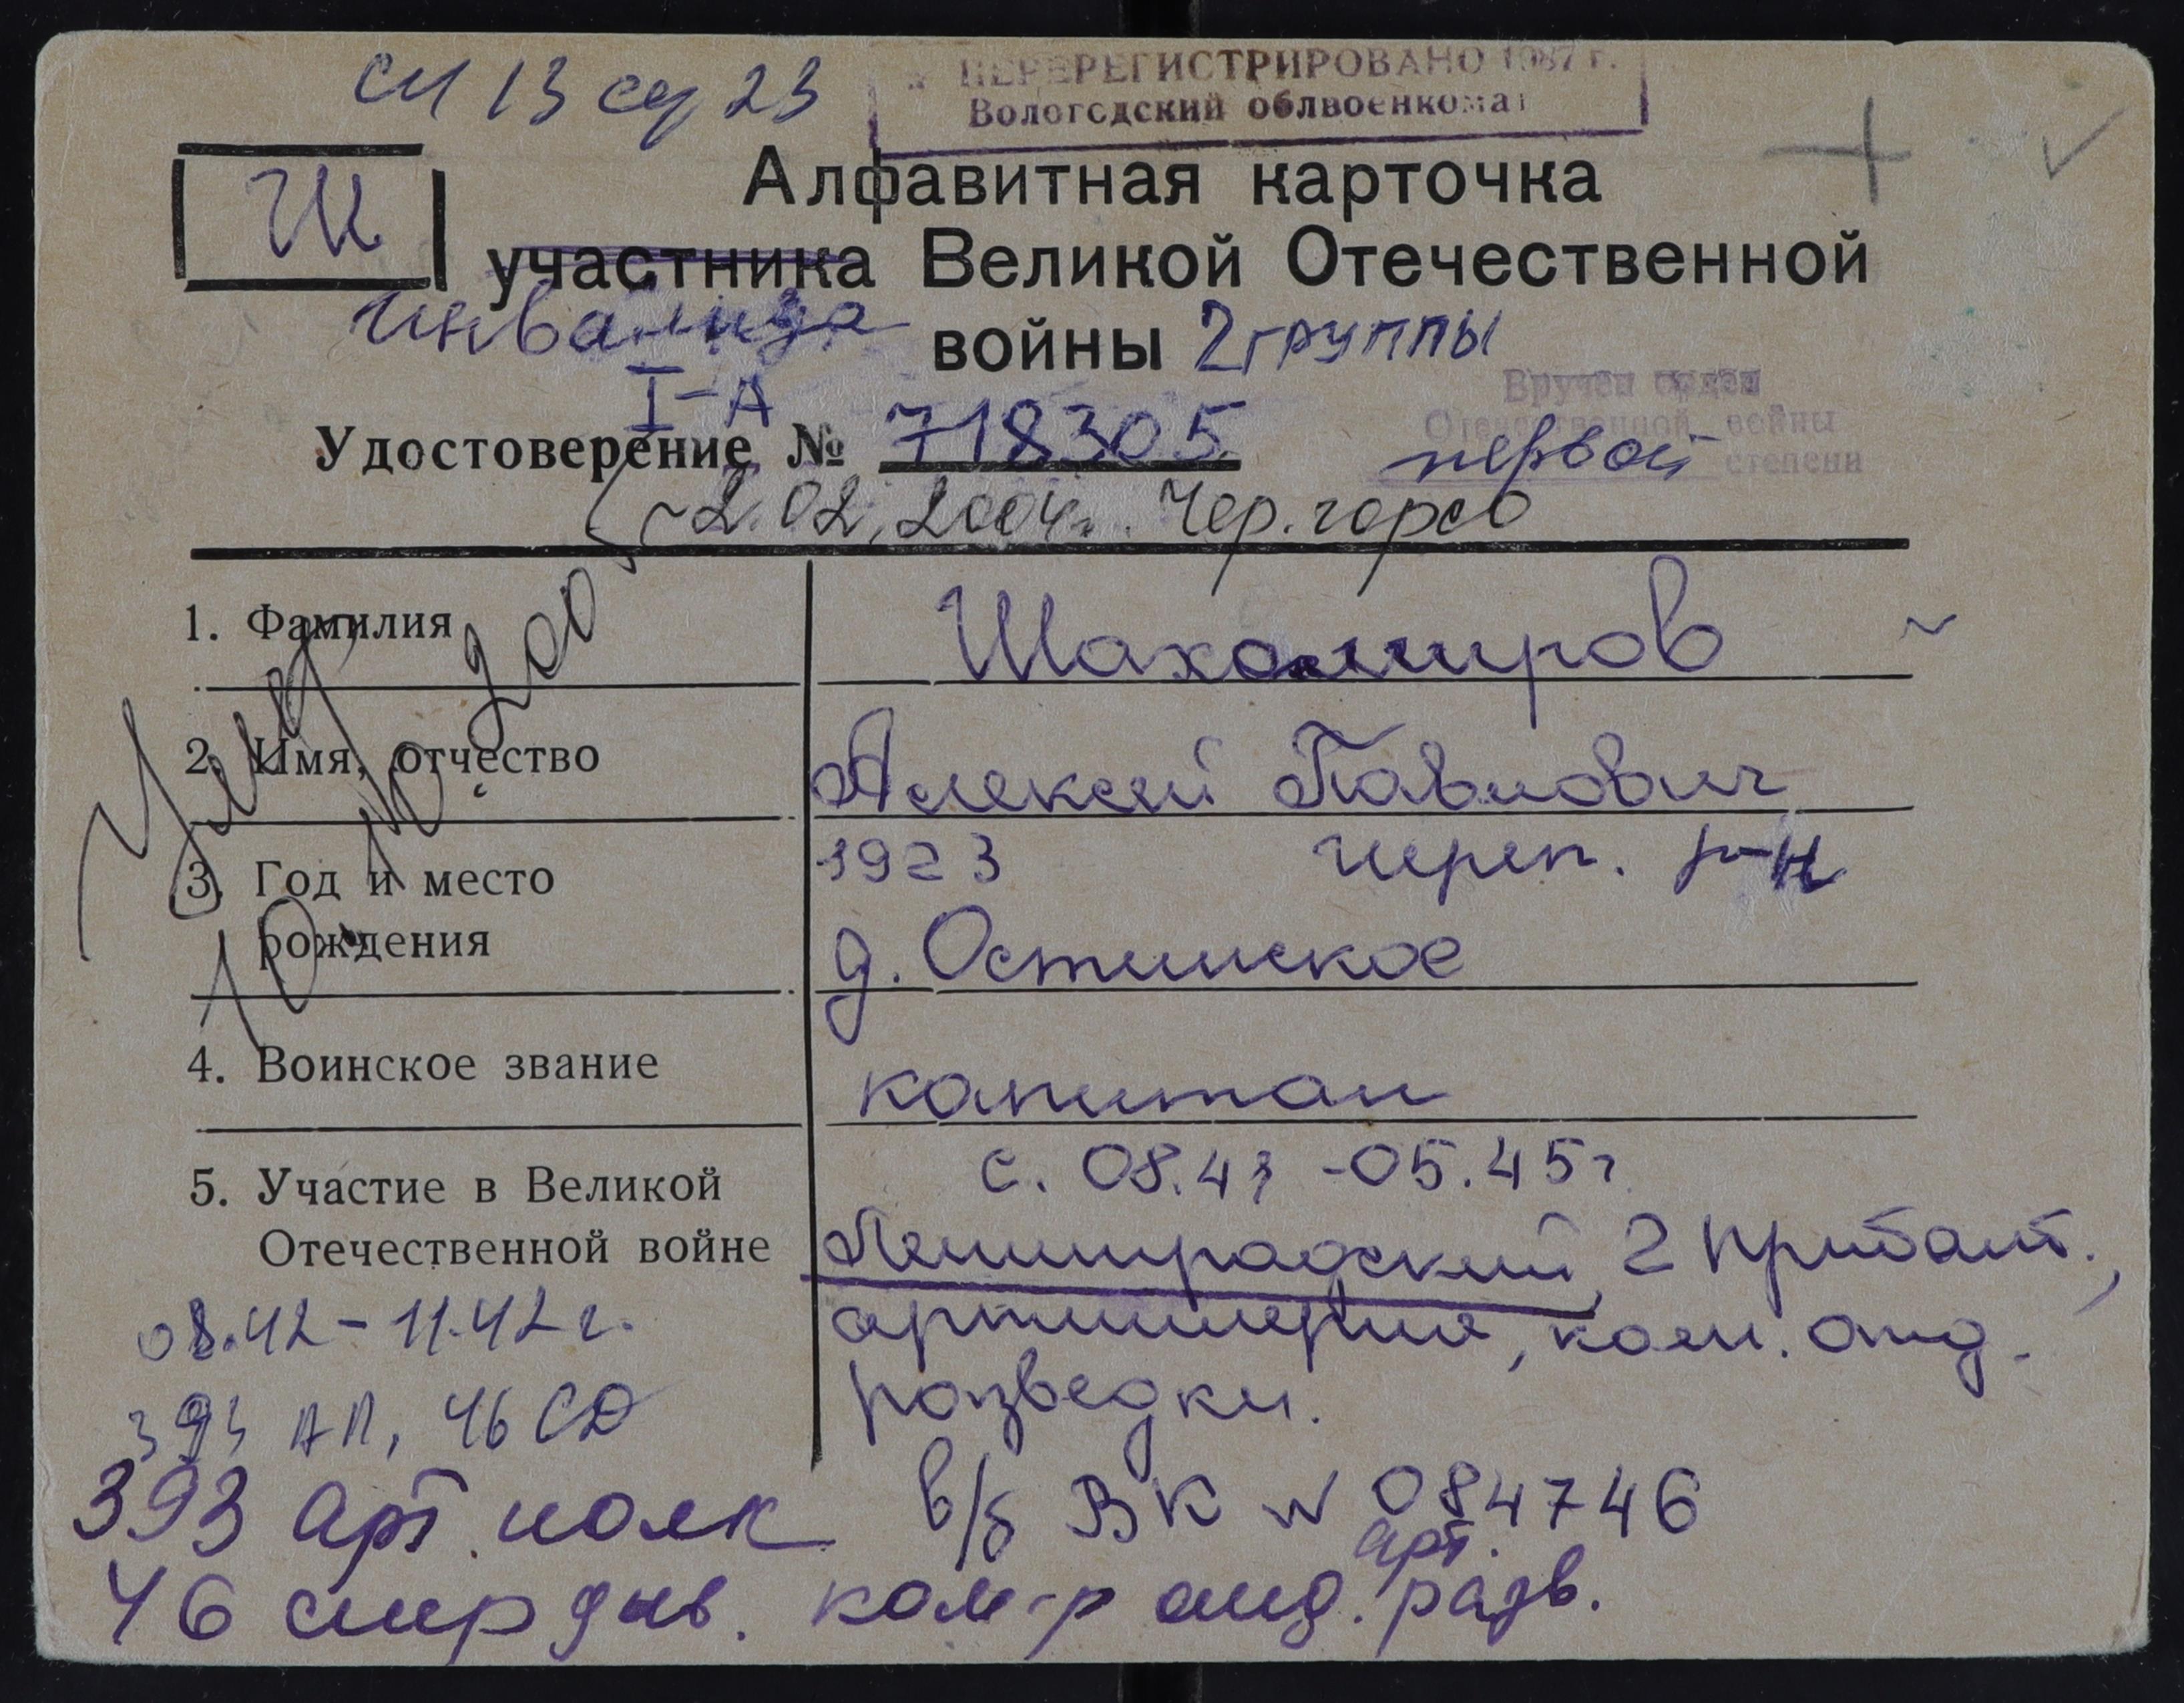 см 13 сд 23
ПЕРЕРЕГИСТРИРОВАНО 1987 г.
Вологодский облвоенкомат
Ш
Алфавитная карточка
участника Великой Отечественной
инвалида войны 2 группы
I-А
Удостоверение № 718305
Вручен орден
Отечественной войны
первой степени
2.02.2004г. Чер.
1. Фамилия Шахомиров
2. Имя, отчество Алексей Павлович
3. Год и место рождения 1923 череп. р-н
д. Остинское
4. Воинское звание капитан
5. Участие в Великой Отечественной войне с. 08.43 -05.45г
Ленинградский, 2 Прибалт.,
артиллерия, ком. отд.
разведки.
08.42 - 11.42 г.
393 АП, 46 СД
393 арт. полк в/б ВК N 084746
46 стр див. ком-р отд. арт. разв.